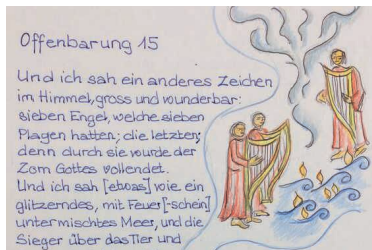 Offenbarung 15
Und ich sah ein anderes Zeichen
im Himmel, gross und wunderbar:
sieben Engel, welche sieben
Plagen hatten; die letzten;
denn durch sie wurde der
Zorn Gottes vollendet.
Und ich sah [etwas] wie ein
glitzerndes, mit Feuer[-schein]
untermischtes Meer, und die
Sieger über das Tier und